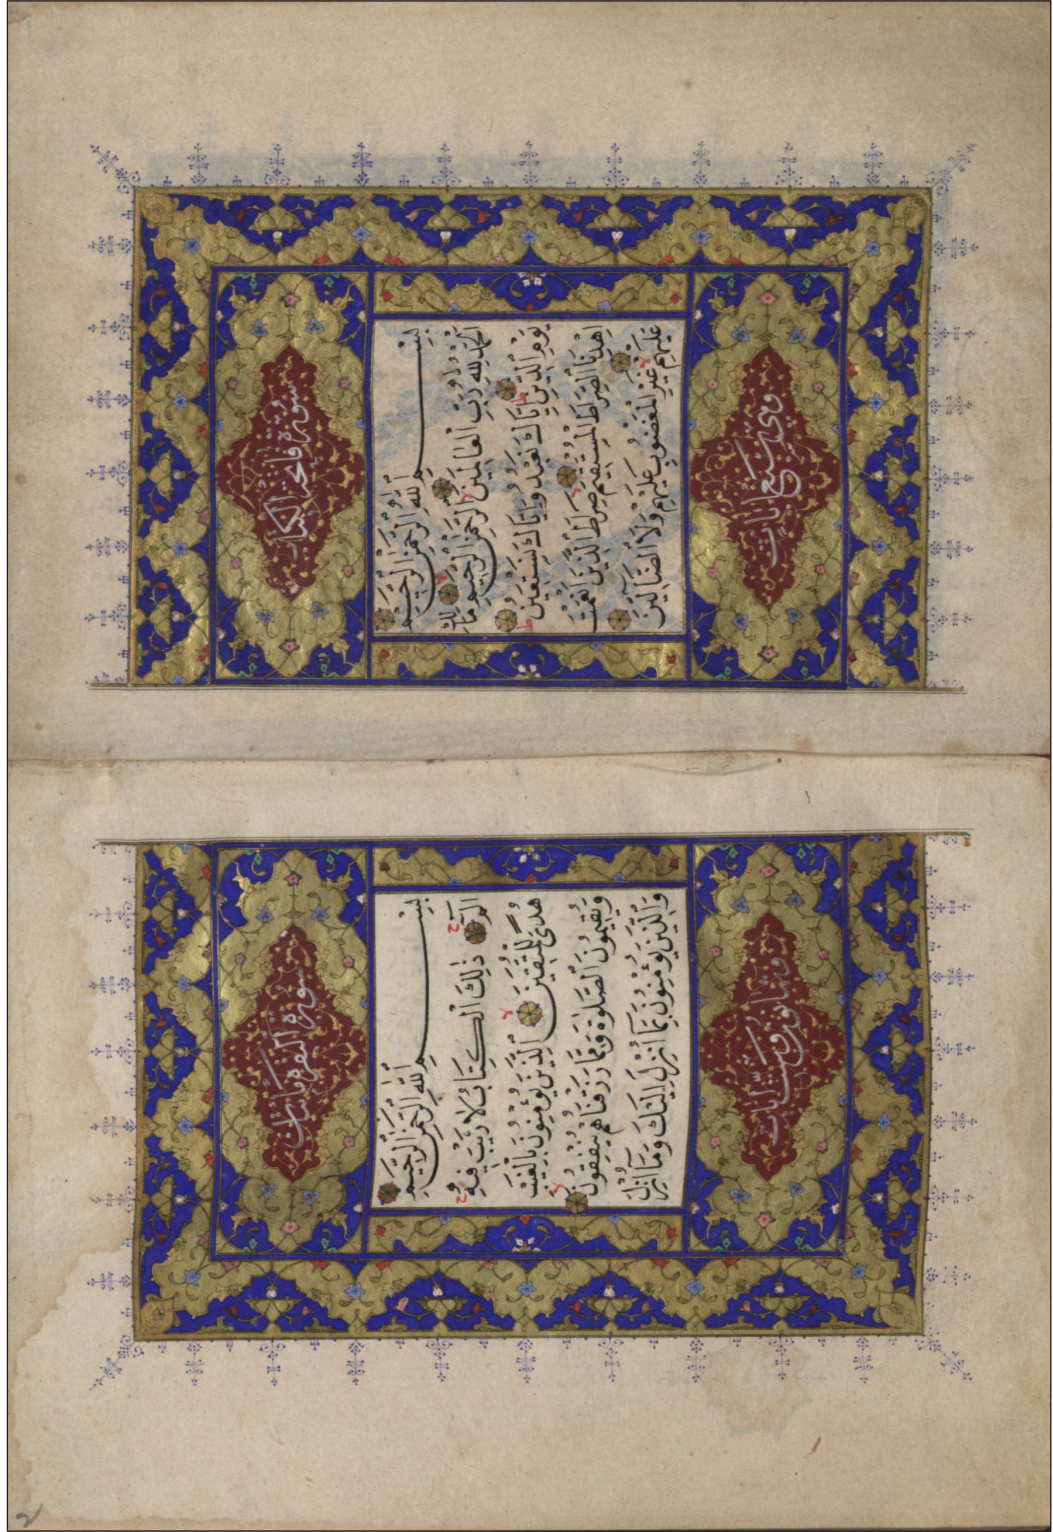 سورة فاتحة الكتاب
بِسْمِ اللهِ الرَّحْمٰنِ الرَّحِيمِ
اَلْحَمْدُ لِلهِ رَبِّ الْعَالَمِينَ الرَّحْمٰنِ الرَّحِيمِ مَالِكِ
يَوْمِ الدِّينِ اِيَّاكَ نَعْبُدُ وَاِيَّاكَ نَسْتَعِينُ
اِهْدِنَا الصِّرَاطَ الْمُسْتَقِيمَ صِرَاطَ الَّذِينَ اَنْعَمْتَ
عَلَيْهِمْ غَيْرِ الْمَغْضُوبِ عَلَيْهِمْ وَلَا الضَّالِّينَ
وهي سبع ايات
سورة البقرة مائتان
بِسْمِ اللهِ الرَّحْمٰنِ الرَّحِيمِ
الم ذٰلِكَ الْكِتَابُ لَا رَيْبَ فِيهِ
هُدًى لِلْمُتَّقِينَ الَّذِينَ يُؤْمِنُونَ بِالْغَيْبِ
وَيُقِيمُونَ الصَّلٰوةَ وَمِمَّا رَزَقْنَاهُمْ يُنْفِقُونَ
وَالَّذِينَ يُؤْمِنُونَ بِمَا اُنْزِلَ اِلَيْكَ وَمَا اُنْزِلَ
وثمانون وست ايات
2